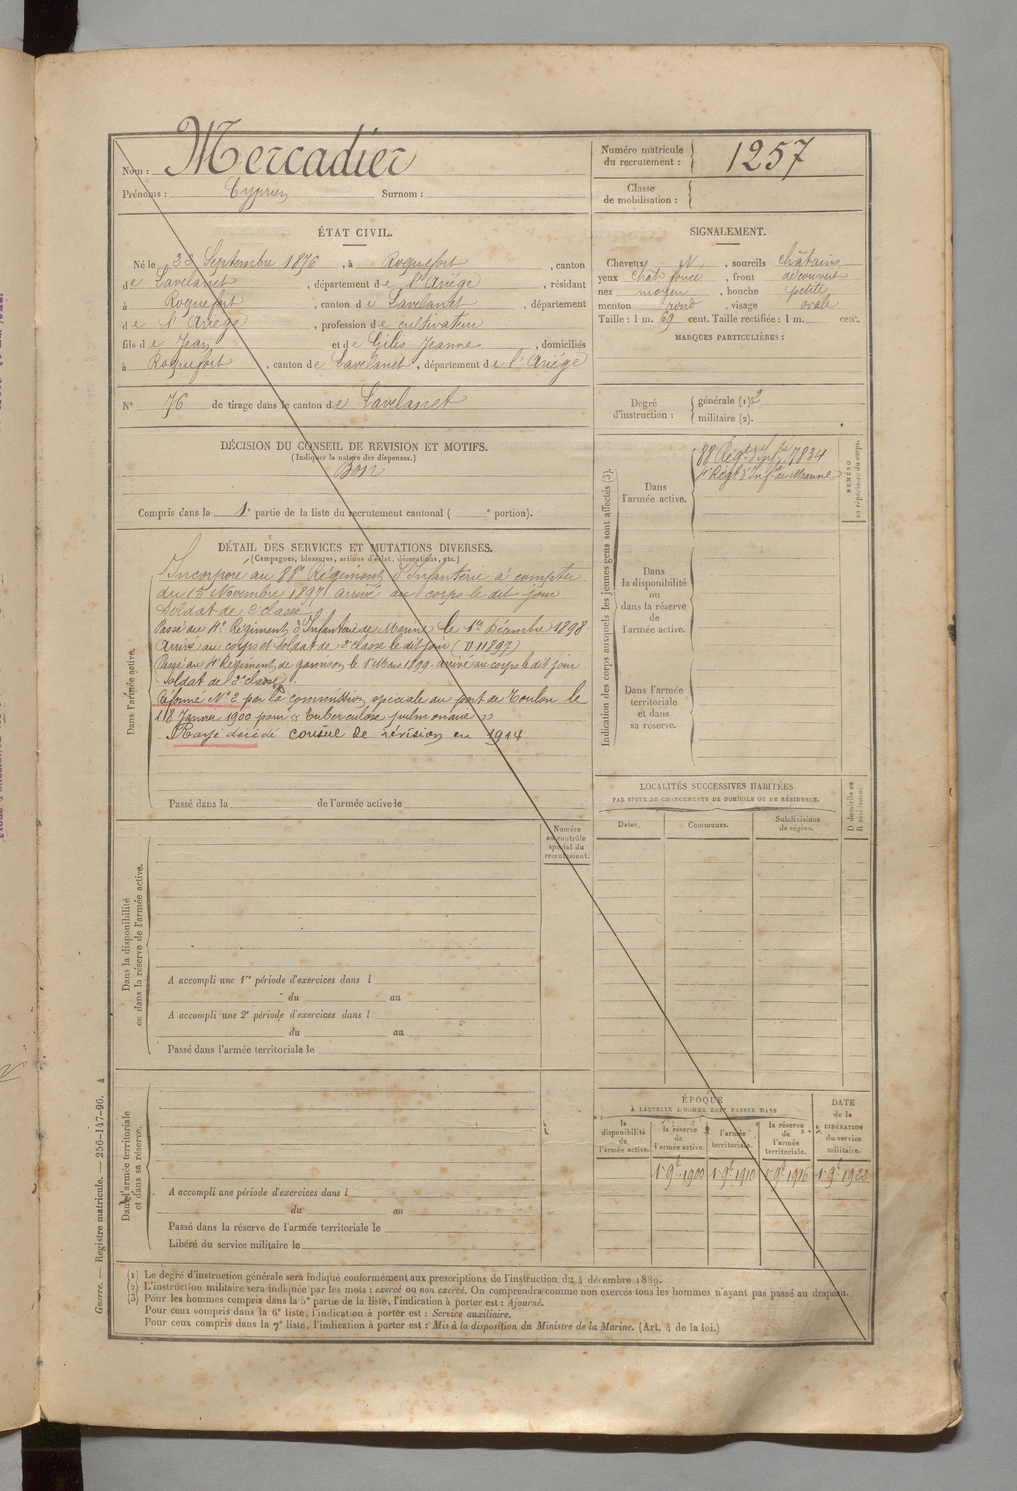 Nom : Mercadier
Prénoms : Cyprien Surnom :
Numéro matricule
du recrutement : 1257
Classe
de mobilisation :
ÉTAT CIVIL.
Né le Septembre 1876, à Roquefort, canton
de Lavelanet, département de l'Ariége, résidant
à Roquefort, canton de Lavelanet, département
de l'Ariége, profession de cultivateur
fils de Jean et de Gilis Jeanne, domiciliés
à Roquefort, canton de Lavelanet, département de l'Ariége
N° 76 de tirage dans le canton de Lavelanet
SIGNALEMENT.
Cheveux N, sourcils châtains
yeux chât foncé, front découvert
nez moyen, bouche petite
menton rond, visage ovale
Taille : 1 m. 69 cent. Taille rectifiée : 1 m. cent.
MARQUES PARTICULIÈRES :
Degré
d'instruction :
générale (1) 2
militaire (2).
DÉCISION DU CONSEIL DE REVISION ET MOTIFS.
(Indiquer la nature des dispenses.)
Bon
Compris dans la 1e partie de la liste du recrutement cantonal ( e portion).
DÉTAIL DES SERVICES ET MUTATIONS DIVERSES.
(Campagnes, blessures, actions d'éclat, décorations, etc.)
Dans l'armée active.
Incorporé au 88e Régiment d'Infanterie à compter
du 15 Novembre 1897 arrivé au corps le dit jour
Soldat de 2e classe
Passé au 4e Régiment d'Infanterie de Marine le 1er Décembre 1898
Arrivé au corps et soldat de 2e classe le dit jour (D 11897)
Passé au 4e Régiment de garnison le 1er Mars 1899 arrivé au corps le dit jour
Soldat de 2e classe.
Réformé N° 2 par la commission spéciale du port de Toulon le
18 Janvier 1900 pour "Tuberculose pulmonaire"
Rayé décédé conseil de révision en 1914
Passé dans la de l'armée active le
Indication des corps auxquels les jeunes gens sont affectés (3).
Dans
l'armée active.
88 Régt d'Infie 7834
4e Régt d'Infie de Marine
NUMÉRO
au répertoire du corps.
Dans
la disponibilité
ou
dans la réserve
de
l'armée active.
Dans l'armée
territoriale
et dans
sa réserve.
LOCALITÉS SUCCESSIVES HABITÉES
PAR SUITE DE CHANGEMENTS DE DOMICILE OU DE RÉSIDENCE.
Dates.
Communes.
Subdivisions
de région.
D domicile ou
R résidence.
Dans la disponibilité
ou dans la réserve de l'armée active.
Numéro
au contrôle
spécial du
recrutement.
A accompli une 1re période d'exercices dans l
du au
A accompli une 2e période d'exercices dans l
du au
Passé dans l'armée territoriale le
Dans l'armée territoriale
et dans sa réserve.
A accompli une période d'exercices dans l
du au
Passé dans la réserve de l'armée territoriale le
Libéré du service militaire le
ÉPOQUE
À LAQUELLE L'HOMME DOIT PASSER DANS
la
disponibilité
de
l'armée active.
la réserve
de
l'armée active.
l'armée
territoriale.
la réserve
de
l'armée
territoriale.
DATE
de la
LIBÉRATION
du service
militaire.
1er 9bre 1900 1er 9bre 1910 1er 9bre 1916 1er 9bre 1922
Guerre. — Registre matricule. — 256-147-96. 4
(1) Le degré d'instruction générale sera indiqué conformément aux prescriptions de l'instruction du 4 décembre 1889.
(2) L'instruction militaire sera indiquée par les mots : exercé ou non exercé. On comprendra comme non exercés tous les hommes n'ayant pas passé au drapeau.
(3) Pour les hommes compris dans la 5e partie de la liste, l'indication à porter est : Ajourné.
Pour ceux compris dans la 6e liste, l'indication à porter est : Service auxiliaire.
Pour ceux compris dans la 7e liste, l'indication à porter est : Mis à la disposition du Ministre de la Marine. (Art. 4 de la loi.)